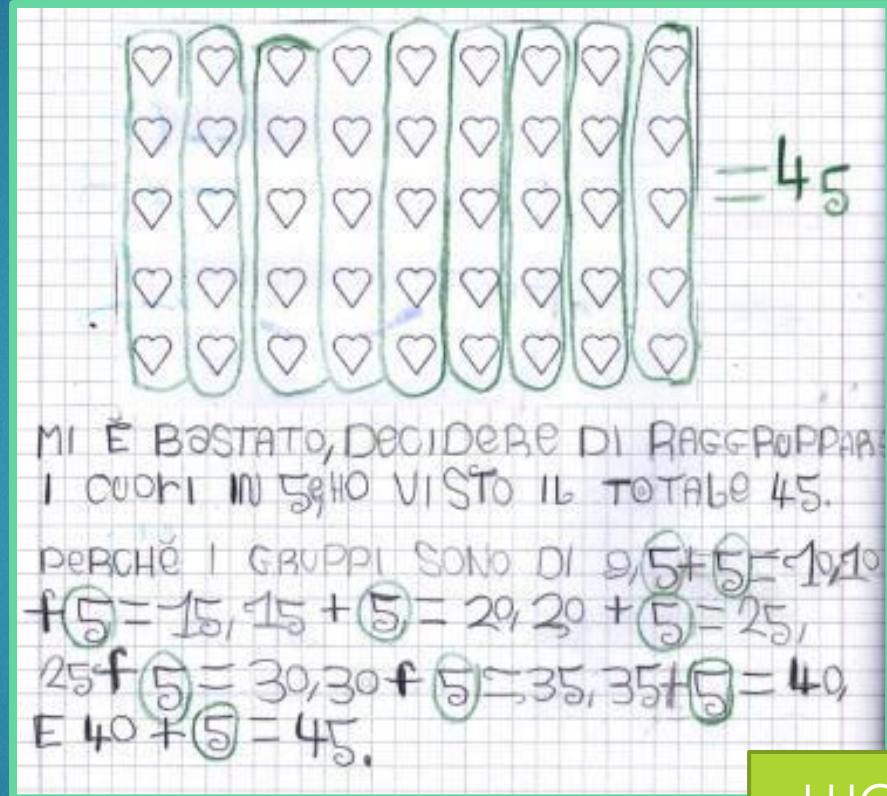 = 45
MI È BASTATO, DECIDERE DI RAGGRUPPAR
I CUORI IN 5 E HO VISTO IL TOTALE 45.
PERCHÉ I GRUPPI SONO DI 9, 5+5=10, 10
+5=15, 15+5=20, 20+5=25,
25+5=30, 30+5=35, 35+5=40,
E 40+5=45.